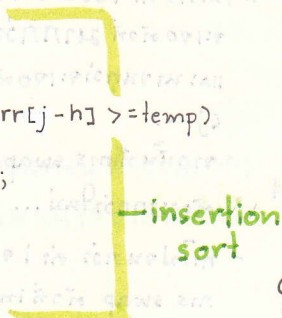 rr[j-h] >=temp)
;
insertion
sort